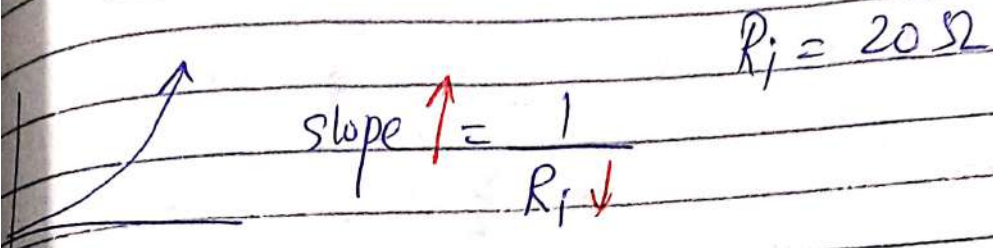 R_i = 20 Ω
slope ↑ = 1 / R_i ↓